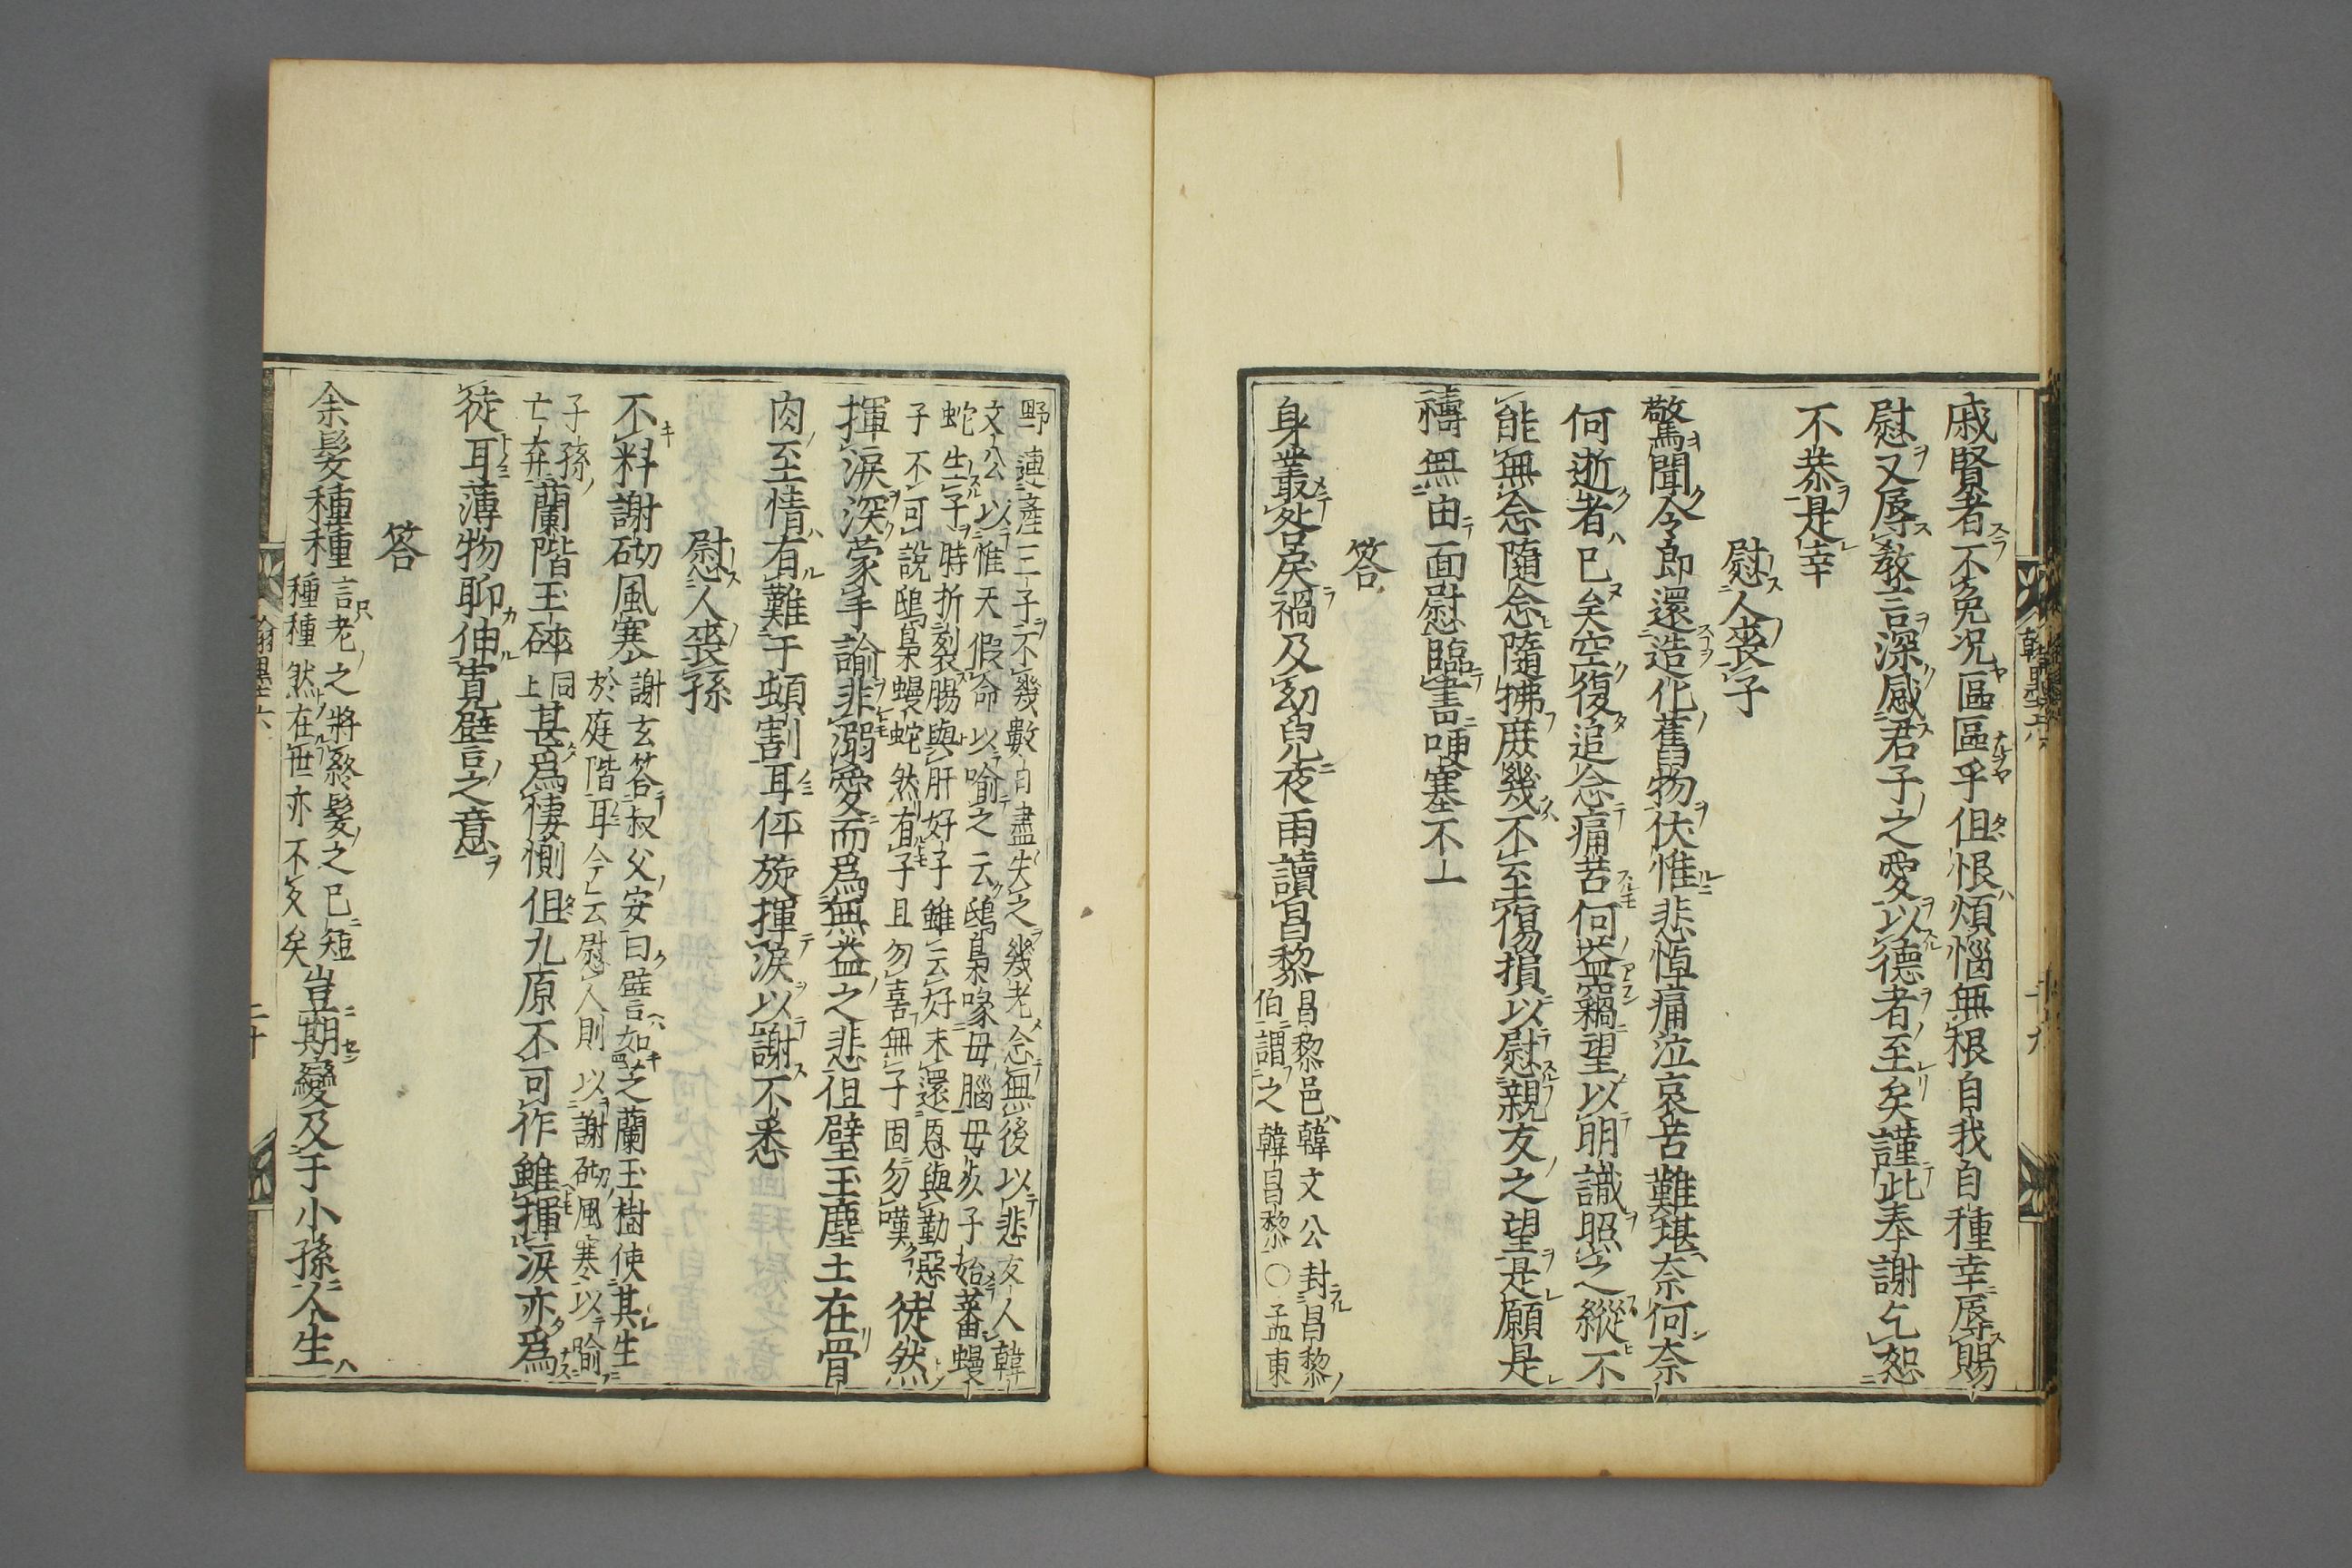 戚賢者不免況區區乎但恨煩惱無根自我自種幸辱賜
慰又辱教言深感君子之愛以德者至矣謹此奉謝乞恕
不恭是幸
慰人喪子
驚聞令郎還造化舊物伏惟悲悼痛泣哀苦難堪奈何奈
何逝者已矣空復追念痛苦何益竊望以明識照之縱不
能無念隨念隨拂庶幾不至傷損以慰親友之望是願是
禱無由面慰臨書哽塞不一
答
身叢咎戾禍及幼兒夜雨讀昌黎
昌黎邑韓文公封昌黎
伯謂之韓昌黎〇孟東
野連產三子不幾數日盡失之幾老念無後以悲友人韓
文公以惟天假命以喻之云鴟梟喙母腦母死子始蕃蝮
蛇生子時折裂腸與肝好子雖云好未還恩與勤惡
子不可說鴟梟蝮蛇然有子且勿喜無子固勿嘆
徒然
揮淚深蒙手諭非溺愛而爲無益之悲但壁玉塵土在骨
肉至情有難于頓割耳伻旋揮淚以謝不悉
慰人喪孫
不料謝砌風寒
謝玄答叔父安曰譬如芝蘭玉樹使其生
於庭階耳今云慰人則以謝砌風寒以喻
子孫
亡弃
蘭階玉碎
同
上
甚爲悽惻但九原不可作雖揮淚亦爲
徒耳薄物聊伸寬譬之意
答
余髮種種
言老之將終髮之已短
種種然在世亦不久矣
豈期變及于小孫人生
翰墨六
二十